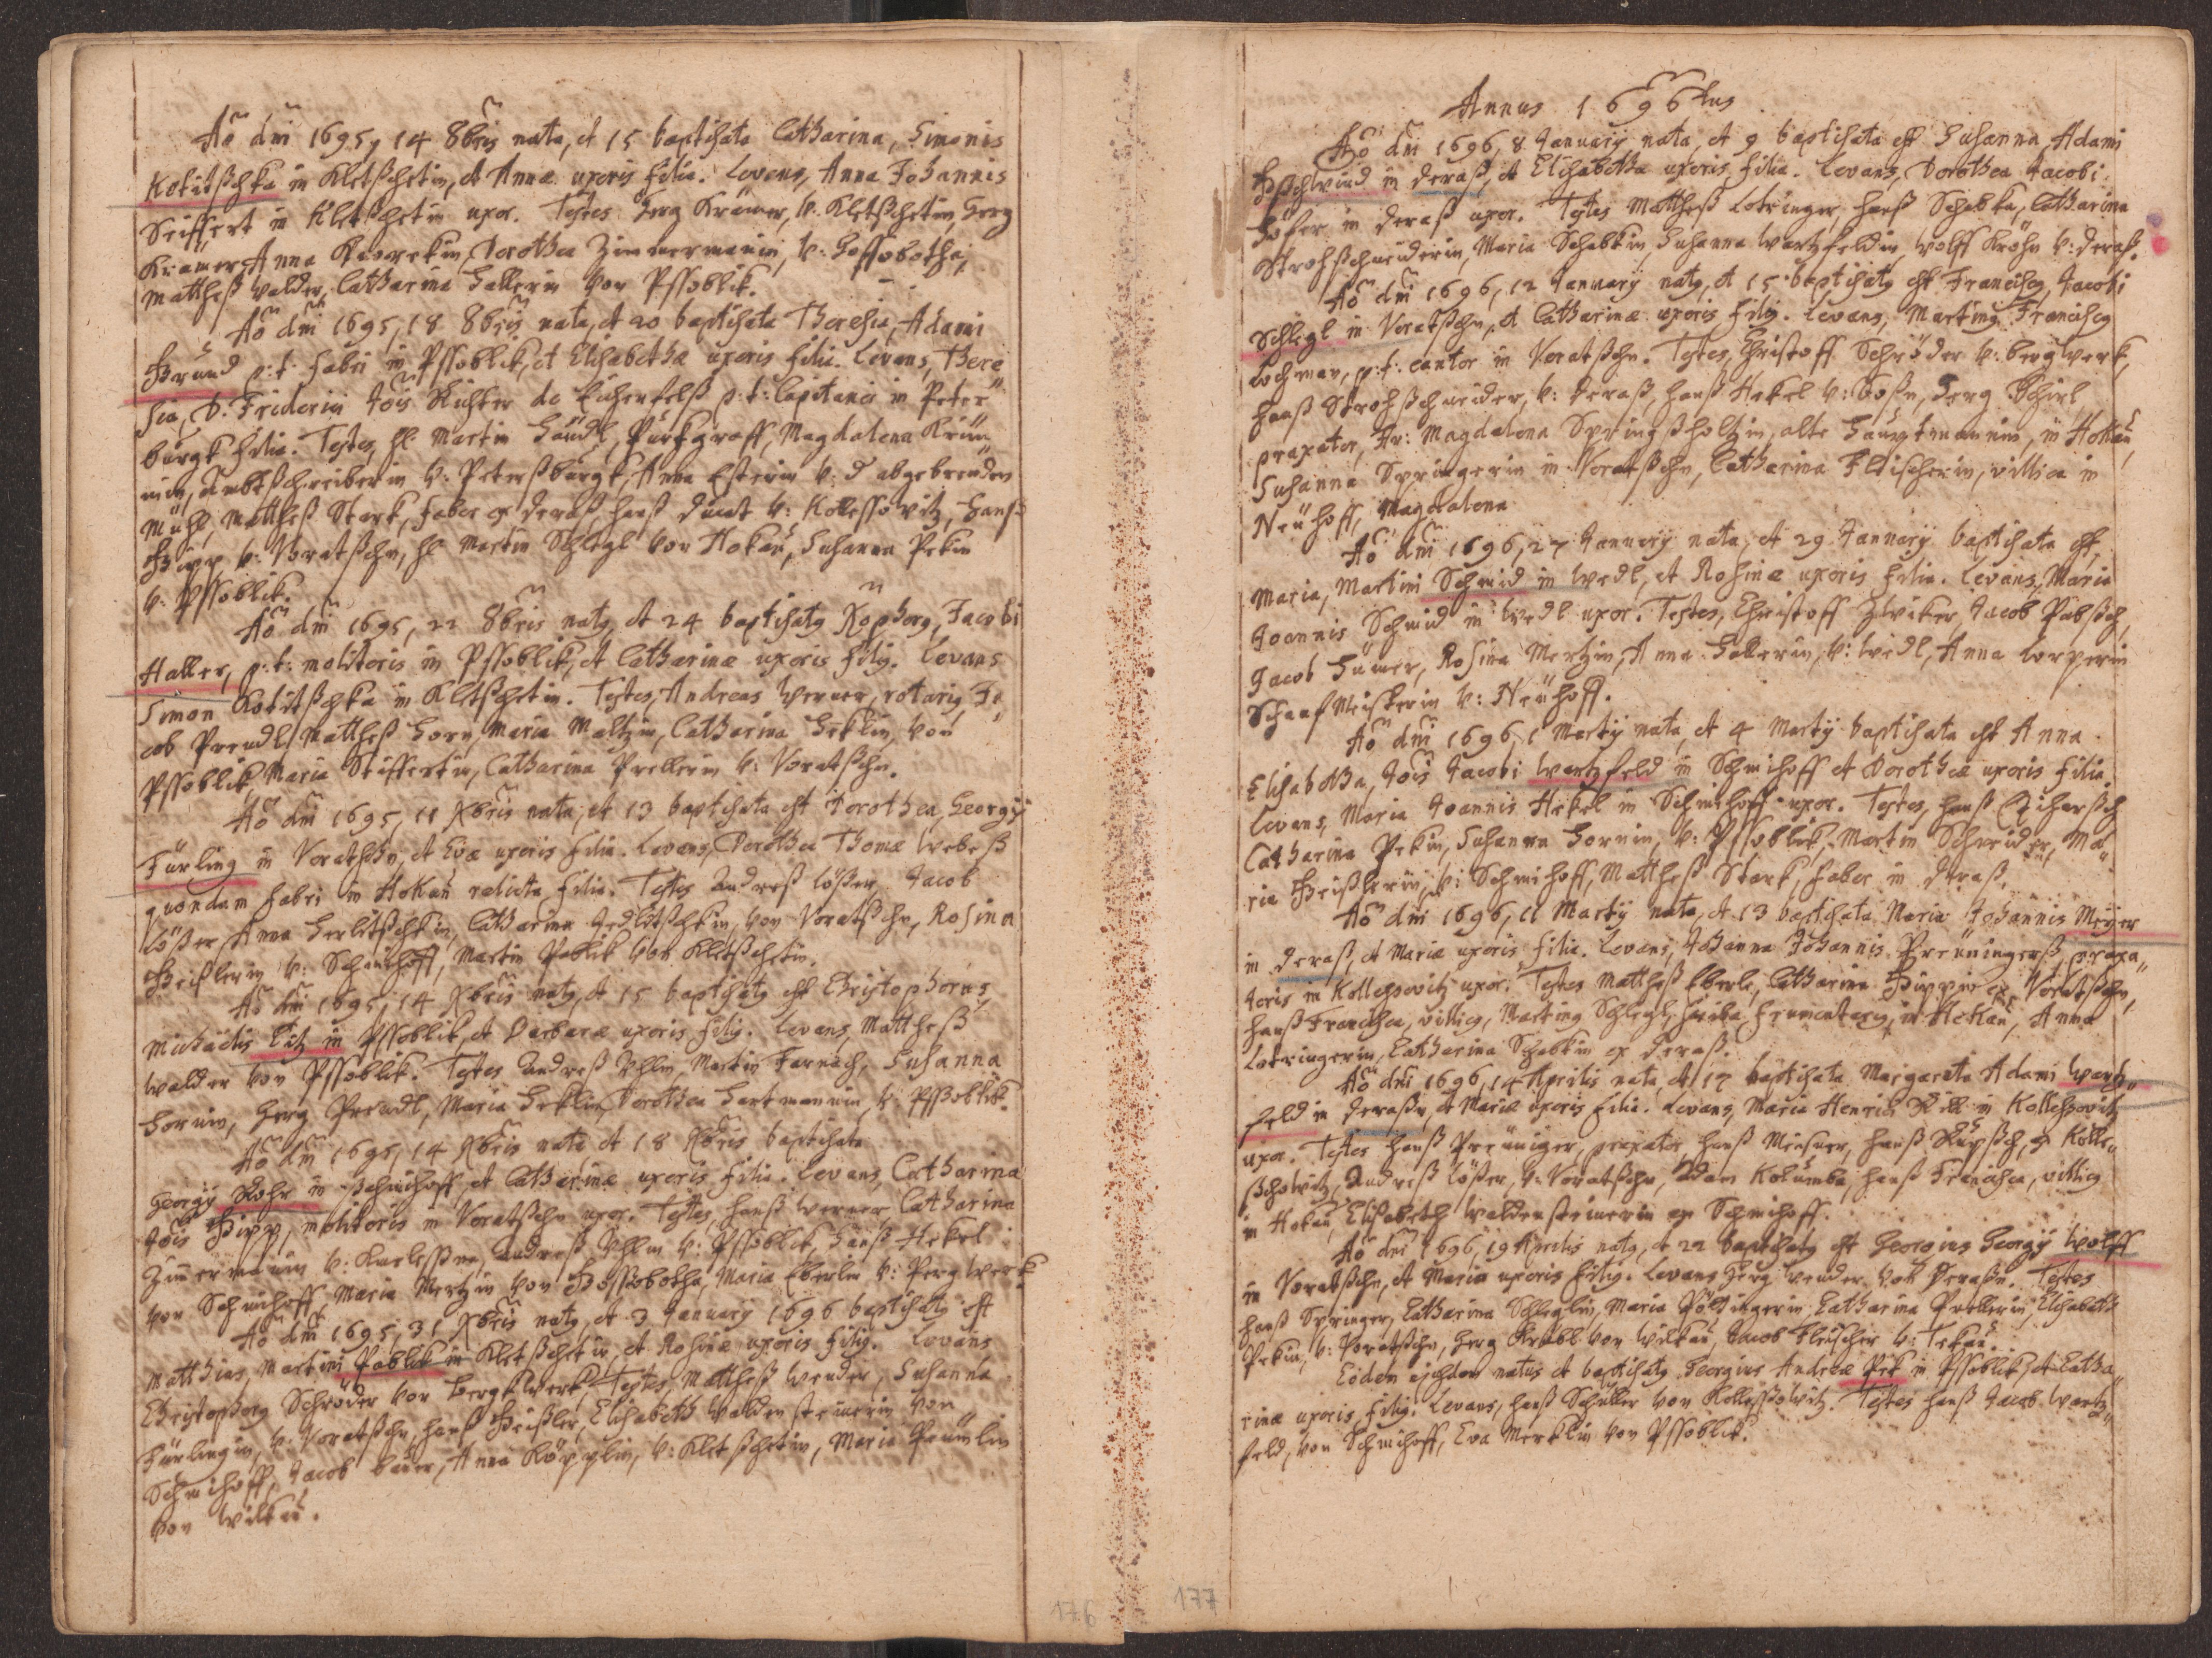 Aõ dni 1695, 14 8bris nata, et 15 baptisata Catharina, Simonis
Kotitschka in Kletschetin, et Annæ uxoris filia. Levans, Anna Johannis
Seiffert in Kletschetin uxor. Testes Gerg Krämer, v: Kletschetin, Gerg
Krämer, Anna Dorothea Zimmermanin, v: Gossobotha,
Mattheß Walder, Catharina Hallerin von Pssoblik.
Aõ dni 1695, 18 8bris nata, et 20 baptisata Theresia, Adami
Grund p:t: fabri in Pssoblik, et Elisabethæ uxoris filia. Levans, There
sia, D. Friderici Jois Richter de Eichenfelß p:t: Capitanei in Peter
burgk filia. Testes, hl: Martin Händl, Purkgraff, Magdalena
nin, Ambtschreiberin v: Peterßburgk, Anna v: d abgebrenden
Mühl, Mattheß Stark, faber ex Deraß, Hanß v: Kollessowitz, Hanß
Hipp v: Woratschn, hl Martin Schlegl von Hokau, Susanna Pekin
v: Pssoblik.
Aõ dni 1695, 22 8bris nat9, et 24 baptisat9 Jacobi
Haller, p:t: molitoris in Pssoblik, et Catharinæ uxoris fili9. Levans
Simon Kotitschka in Kletschetin. Testes, Andreas Werner, rotari9, Ja,
cob Preudl, Mattheß Horn, Maria Maltzin, Catharina Heklin, von
Pssoblik, Maria Seiffertin, Catharina Prellerin v: Woratschn.
Aõ dni 1695, 11 Xbris nata, et 13 baptisata est Dorothea, Georgÿ
Fürling in Woratschn, et Evæ uxoris filia. Levans, Dorothea Thomæ Webeß
quondam fabri in Hokau relicta filia. Testes Andreß Lößer, Jacob
Lößer, Anna Catharina von Woratschn, Rosina
Geißlerin v: Schmihoff, Martin Pablik von Kletschetin.
Aõ dni 1695, 14 Xbris nat9, et 15 baptisat9 est Christophorus,
Michaëlis Eitz in Pssoblik, et Barbaræ uxoris fili9. Levans, Mattheß
Walder von Pssoblik. Testes Andreß Uhlm, Martin Farnach, Susanna
Hornin, Gerg Preudl, Maria Heklin, Dorothea Hartmannin, v: Pssoblik.
Aõ dni 1695, 14 Xbris nata et 18 Xbris baptisata
Georgÿ Rohr in Schmihoff, et Catharinæ uxoris filia. Levans, Catharina
Jois Hipp, molitoris in Woratschn uxor. Testes, Hanß Werner, Catharina
Zimermanin v: Andreß Uhlm v: Pssoblik, Hanß Hekel
von Schmihoff, Maria Mertzin von Gossobotha, Maria Eberlin v: Pergwerk
Aõ dni 1695, 31 Xbris nat9, et 3 January 1696 baptisat9 est
Matthias, Martini Pablik in Kletschetin, et Rosinæ uxoris fili9. Levans
Christophorg Schröder von Bergkwerk. Testes, Mattheß Wender, Susanna
Fürlingin, v: Woratschn, Hanß Geißler, Elisabeth Waldensteinerin von
Schmihoff, Jacob Bauer, Anna Köpplin, v: Kletschetin, Maria
von Wilkau.
176
Annus 1696tus
Aõ dni 1696, 8 January nata, et 9 baptisata est Susanna, Adami
Gschwind in Deraß, et Elisabetha uxoris filia. Levans, Dorothea Jacobi
Höfer in Deraß uxor. Testes Mattheß Lotringer, Hanß Schabka, Catharina
Strohschneiderin, Maria Schabkin, Susanna Wartzfeldin, Wolff Krohn v: Deraß.
Aõ dni 1696, 12 January nat9, et 15 baptisat9 est Francisc9, Jacobi
Schlegl in Woratschn, et Catharinæ uxoris fili9. Levans, Martin9 Francisc9
Lochman, p:t: cantor in Woratschn. Testes, Christoff Schröder v: Bergwerk,
Hanß Strohschneider, v: Deraß, Hanß Hekel v: Gerg Schirl
praxator, Fr: Magdalena Springßholtzin, alte Hauptmannin, in Hokau,
Susanna Springerin in Woratschn, Catharina Fleischerin, villica in
Neuhoff, Magdalena
Aõ dni 1696, 27 January nata, et 29 January baptisata est,
Maria, Martini Schmid in Wedl, et Rosinæ uxoris filia. Levans, Maria
Joannis Schmid in Wedl uxor. Testes, Christoff Zwiker, Jacob Pabsch,
Jacob Rosina Mertzin, Anna Hallerin, v: Wedl, Anna
Schaafmeisterin v: Neuhoff.
Aõ dni 1696, 1 Martÿ nata, et 4 Martÿ baptisata est Anna
Elisabetha, Jois Jacobi Wartzfeld in Schmihoff et Dorotheæ uxoris filia.
Levans, Maria Joannis Hekel in Schmihoff uxor. Testes, Hanß
Catharina Pekin, Susanna Hornin, v: Pssoblik, Martin Schneider, Ma
ria Geißlerin, v: Schmihoff, Mattheß Stark, faber in Deraß.
Aõ dni 1696, 11 Martÿ nata, et 13 baptisata Maria Johannis Meÿer
in Deraß, et Mariæ uxoris filia. Levans, Johanna Johannis Preüningerß, praxa,,
toris in Kolleschowitz uxor. Testes Mattheß Eberle, Catharina Hippin ex Woratschn,
Hanß Francisca, villic9, Martin9 Schlegl, scriba frumentari9, in Hokau, Anna
Lotringerin, Catharina Schabkin ex Deraß.
Aõ dni 1696, 14 Aprilis nata, et 17 baptisata Margareta Adami Wartz,,
feld in Deraßn, et Mariæ uxoris filia. Levans, Maria Henrici in Kolleschowitz
uxor. Testes Hanß Preüniger, praxator, Hanß Hanß ex Kolle,,
schowitz, Andreß Lößer, v: Woratschn, Adam Kolumba, Hanß Francisca, villic9
in Hokau, Elisabeth Waldensteinerin ex Schmihoff.
Aõ dni 1696, 19 Aprilis nat9, et 22 baptisat9 est Georgius Georgÿ Wolff
in Woratschn, et Mariæ uxoris fili9. Levans Gerg Wender von Deraßn. Testes
Hanß Springer, Catharina Schleglin, Maria Catharina Prellerin, Elisabeth
Pekin, v: Woratschn, Gerg von Wilkau, Jacob Fleischer v: Tekau.
Eodem ejusdem natus et baptisat9 Georgius Andreæ Pek in Pssoblik, et Catha
rinæ uxoris fili9. Levans, Hanß Schuller von Kolleschowitz. Testes Hanß Jacob Wartz,,
feld, von Schmihoff, Eva Merklin von Pssoblik.
177